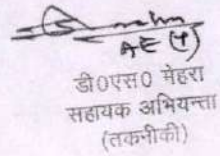 AE (T)
डी०एस० मेहरा
सहायक अभियन्ता
(तकनीकी)